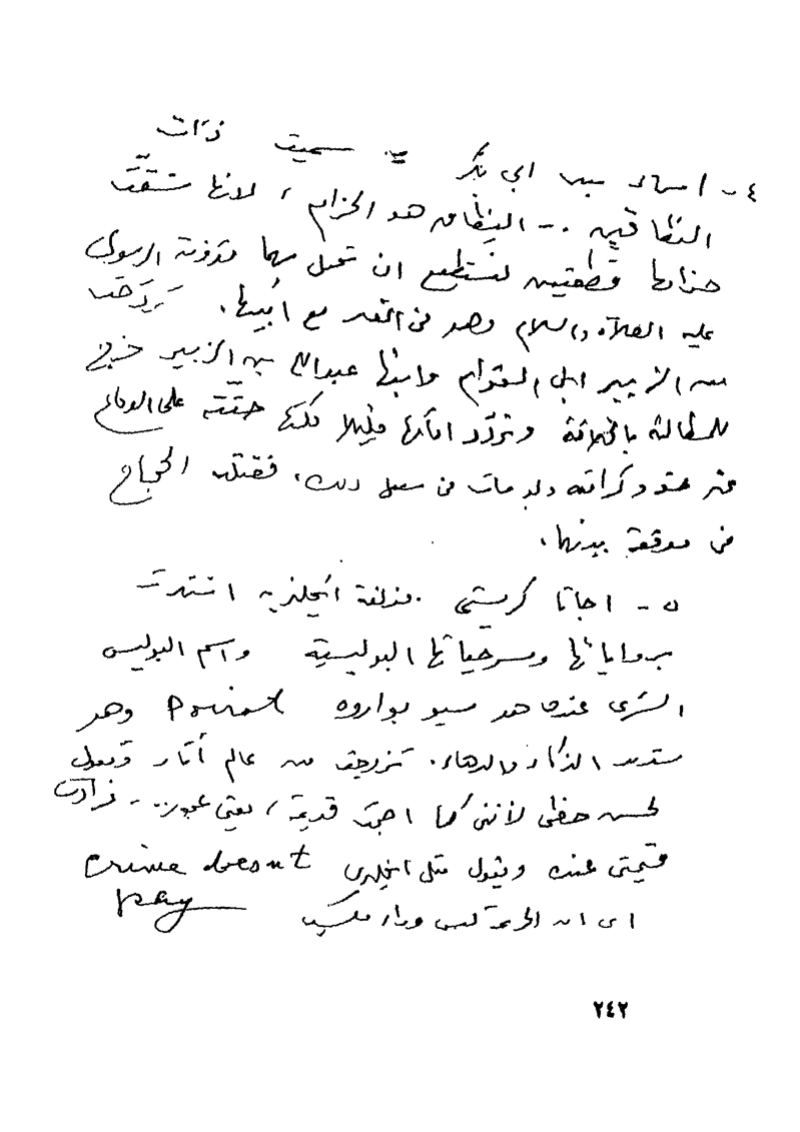 ٤ - اسماء بنت ابي بكر = سميت ذات
النطاقين .- النِطاق هو الحزام ، لانها شقّت
حزامها قطعتين لتستطيع ان تحمل بهما مؤونة الرسول
عليه الصلاة والسلام وهو في الغار مع أبيها . تزوجت
من الزبير ابن العوام وابنها عبدالله بن الزبير خرج
للمطالبة بالخلافة وتردّد امامها قليلا لكنها حثّته على الدفاع
عن حقه وكرامته ولو مات في سبيل ذلك ، فقتله الحجاج
في موقعة بينهما .
٥ - اجاثا كريستي . مؤلفة انجليزيه اشتهرت
برواياتها ومسرحياتها البوليسية واسم البوليس
السّري عندها هو مسيو بواروه Poirot وهو
شديد الذكاء والدهاء . تزوجت من عالم آثار وتقول
لحسن حظي لأنني كلما اصبحت قديمة ، يعني عجوز .. زادت
قيمتي عنده ويقول مثل انجليزي crime doesnt
pay
اي ان الجريمة ليس وراءها مكسب
٢٤٢